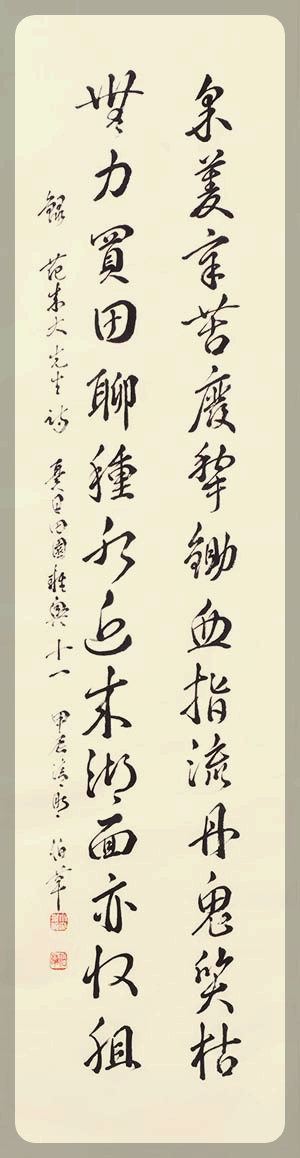 采菱辛苦廢犁鋤血指流丹鬼質枯
無力買田聊種水近來湖面亦收租
錄 范成大先生詩 夏日田園雜興十一 甲辰清明 伯